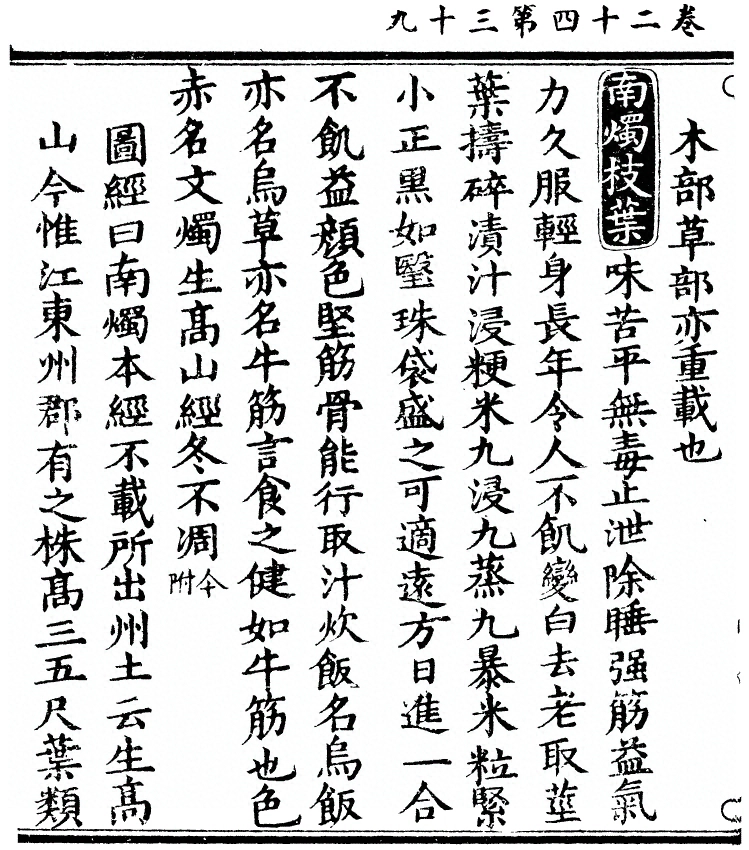 卷二十四第三十九
木部草部亦重載也
南燭枝葉味苦平無毒止泄除睡强筋益氣
力久服輕身長年令人不飢變白去老取莖
葉擣碎漬汁浸粳米九浸九蒸九暴米粒緊
小正黑如瑿珠袋盛之可適遠方日進一合
不飢益顔色堅筋骨能行取汁炊飯名烏飯
亦名烏草亦名牛筋言食之健如牛筋也色
赤名文燭生髙山經冬不凋今附
圖經曰南燭本經不載所出州土云生髙
山今惟江東州郡有之株髙三五尺葉類